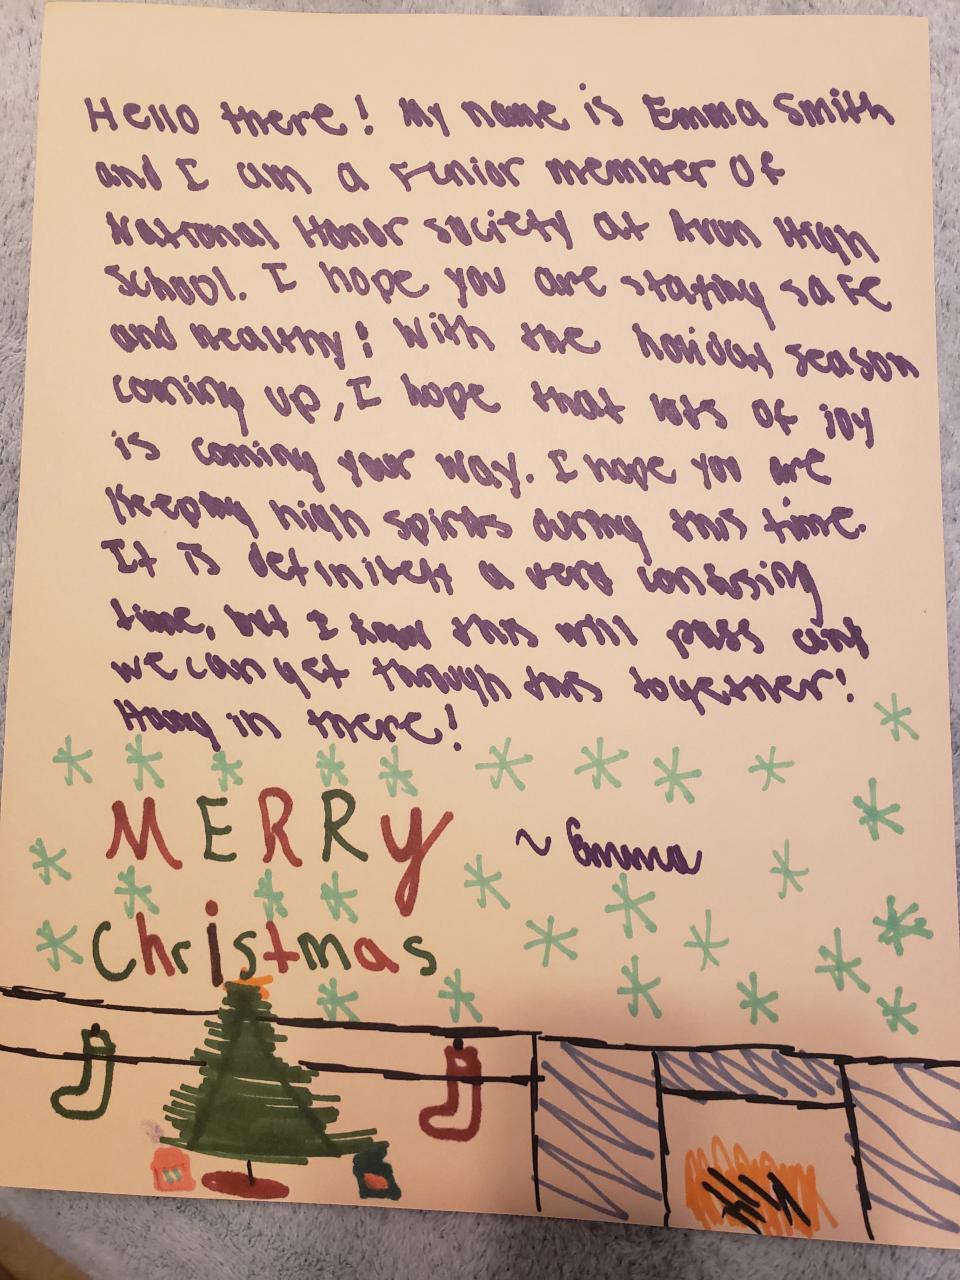 Hello there! My name is Emma Smith
and I am a senior member of
National Honor society at Avon High
School. I hope you are staying safe
and healthy! With the holiday season
coming up, I hope that lots of joy
is coming your way. I hope you are
Keeping high spirits during this time.
It is definitely a very confusing
time, but I know this will pass and
we can get through this together!
Hang in there!
MERRY
~ Emma
Christmas